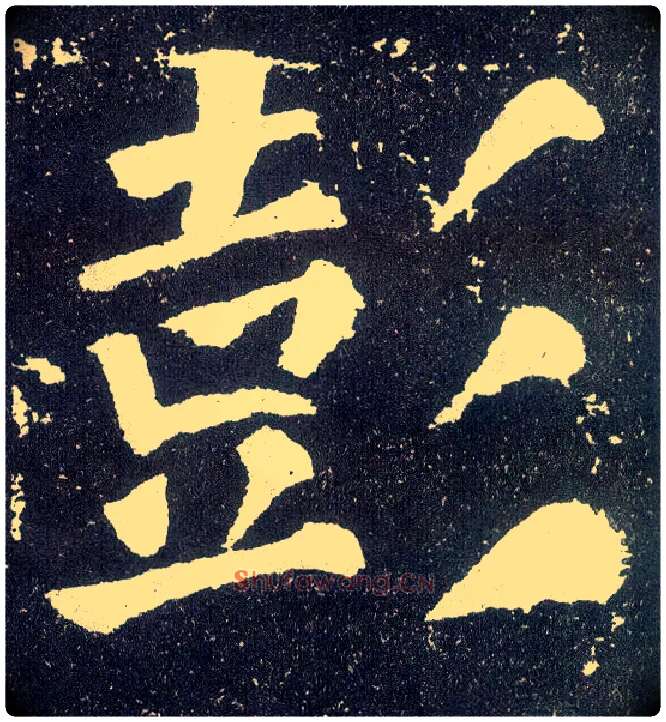 彭
Shufawang.CN